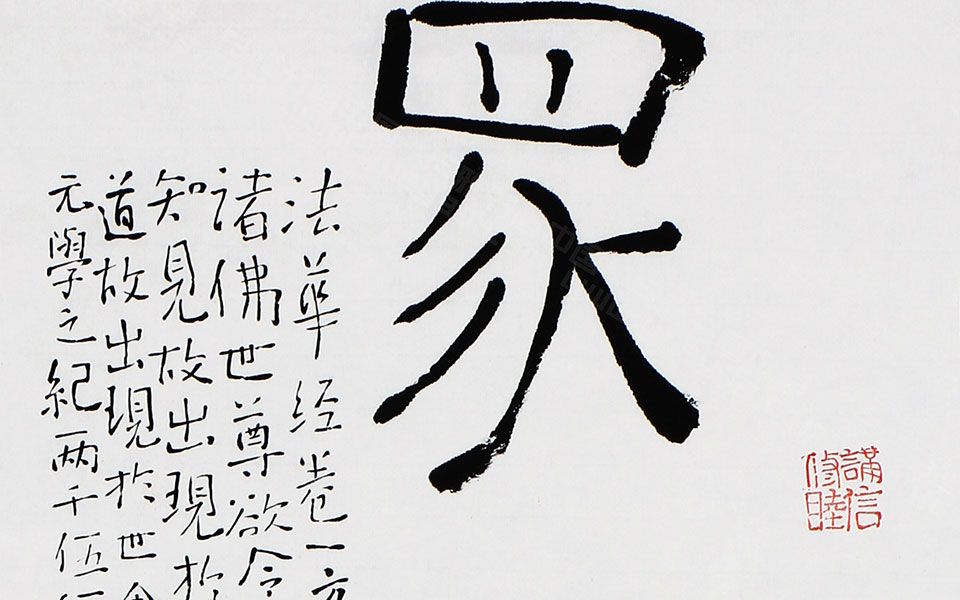 講信
修睦
眾
法華经卷一方
諸佛世尊欲令
知見故出現於
道故出現於世舍
元學之紀两千伍